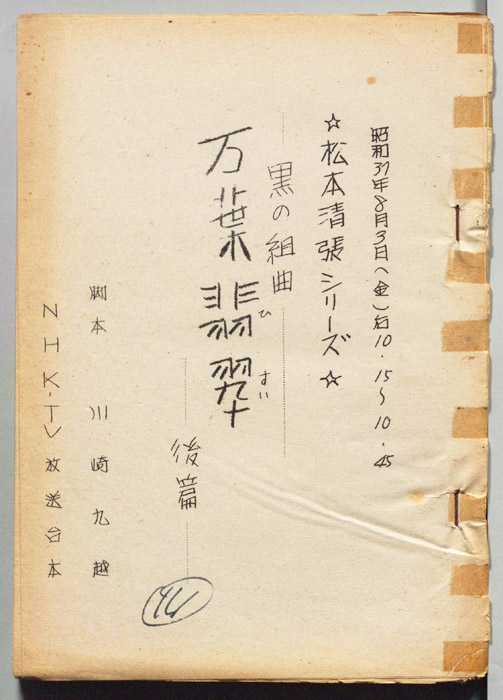 昭和37年8月3日(金)后10.15～10.45
☆松本清張シリーズ☆
黒の組曲
万葉翡翠
ひすい
後篇
脚本 川崎九越
NHK-TV放送台本